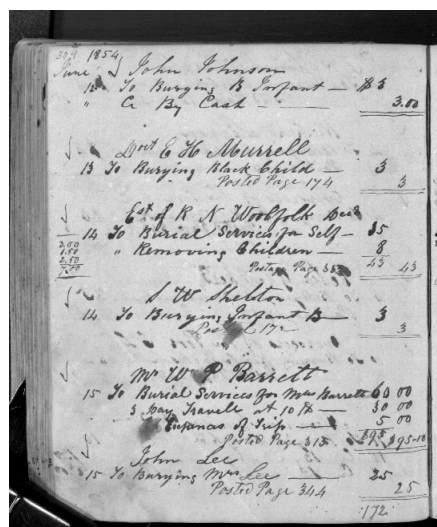 304 1854
June John Johnson
12 To Burying B Infant — $3
" Cr By Cash — — 3.00
Doct E H Murrell
13 To Burying Black Child — 3
Posted Page 174 3
Est of R N Woolfolk Decd
14 To Burial Services for Self — 35
3.00
1.50 " Removing Children — 8
2.50
7.00 Postage Page 43 43
S W Shelton
14 To Burying Infant B — 3
3
Mr W P Barrett
15 To Burial Services for Mrs Barrett 60 00
3 Day Travell at 10 $ — 30 00
Expences of Trip — 5 00
Posted Page 313 $95 $95-00
John Lee
15 To Burying Mrs Lee — 25
Posted Page 344 25
172